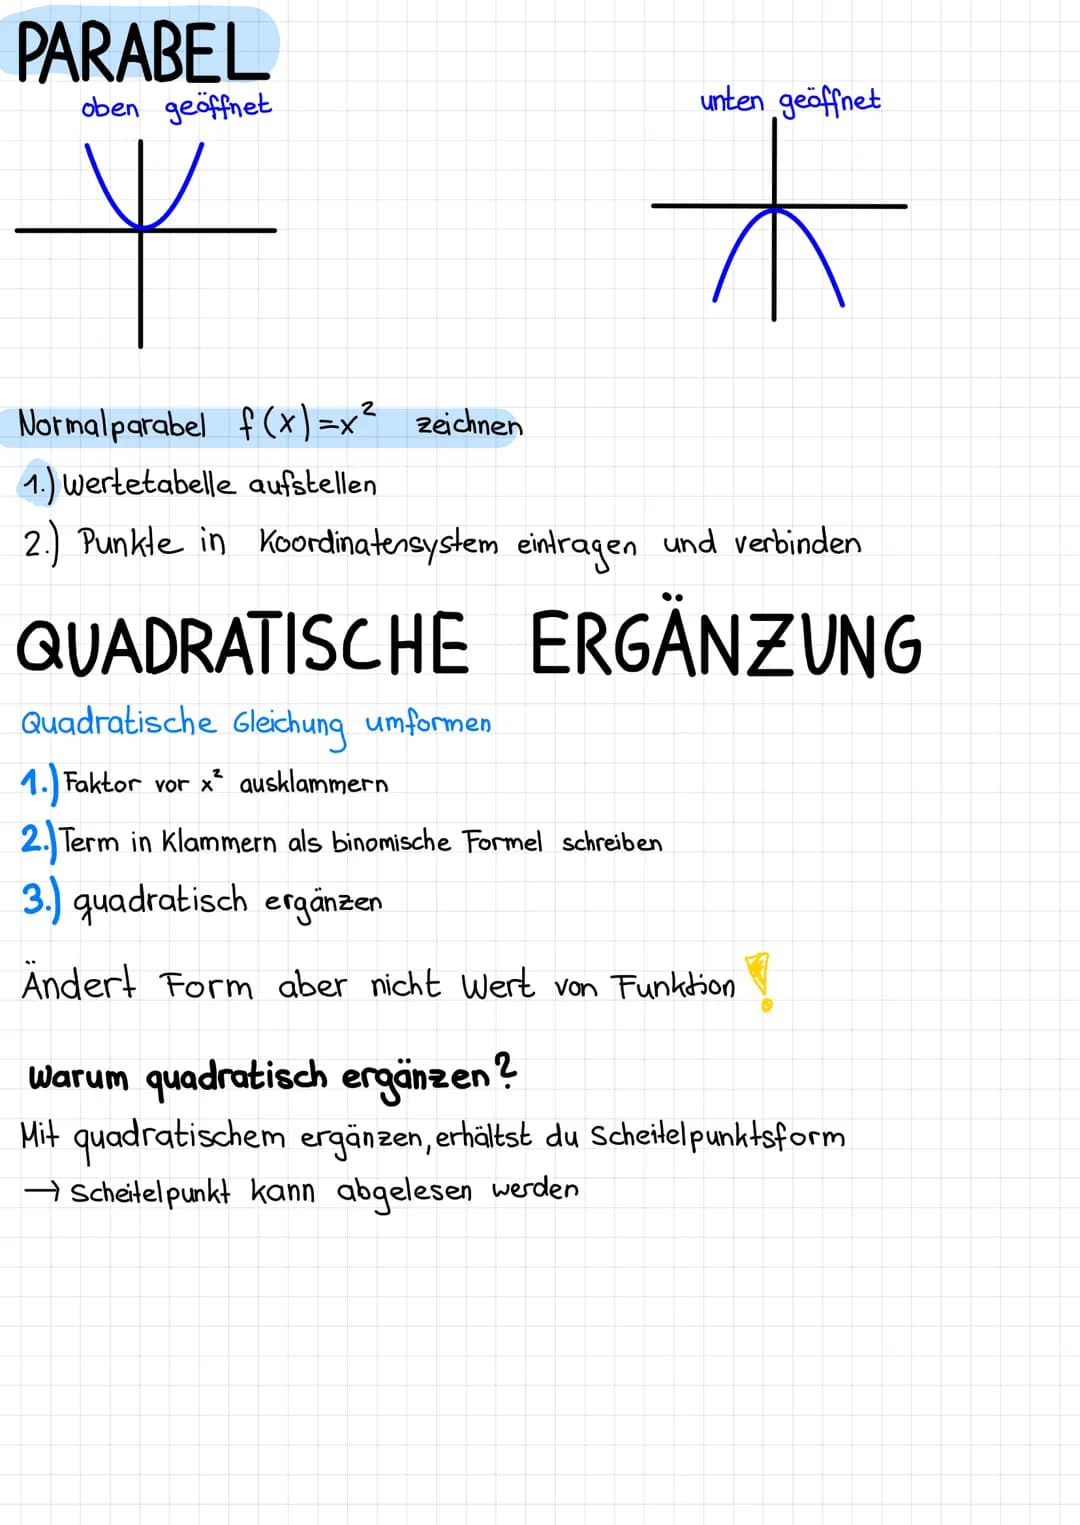 PARABEL
oben geöffnet
unten geöffnet
Normalparabel f(x)=x² zeichnen
1.) Wertetabelle aufstellen
2.) Punkte in Koordinatensystem eintragen und verbinden
QUADRATISCHE ERGÄNZUNG
Quadratische Gleichung umformen
1.) Faktor vor x² ausklammern
2.) Term in Klammern als binomische Formel schreiben
3.) quadratisch ergänzen
Ändert Form aber nicht Wert von Funktion !
Warum quadratisch ergänzen?
Mit quadratischem ergänzen, erhältst du Scheitelpunktsform
→ Scheitelpunkt kann abgelesen werden